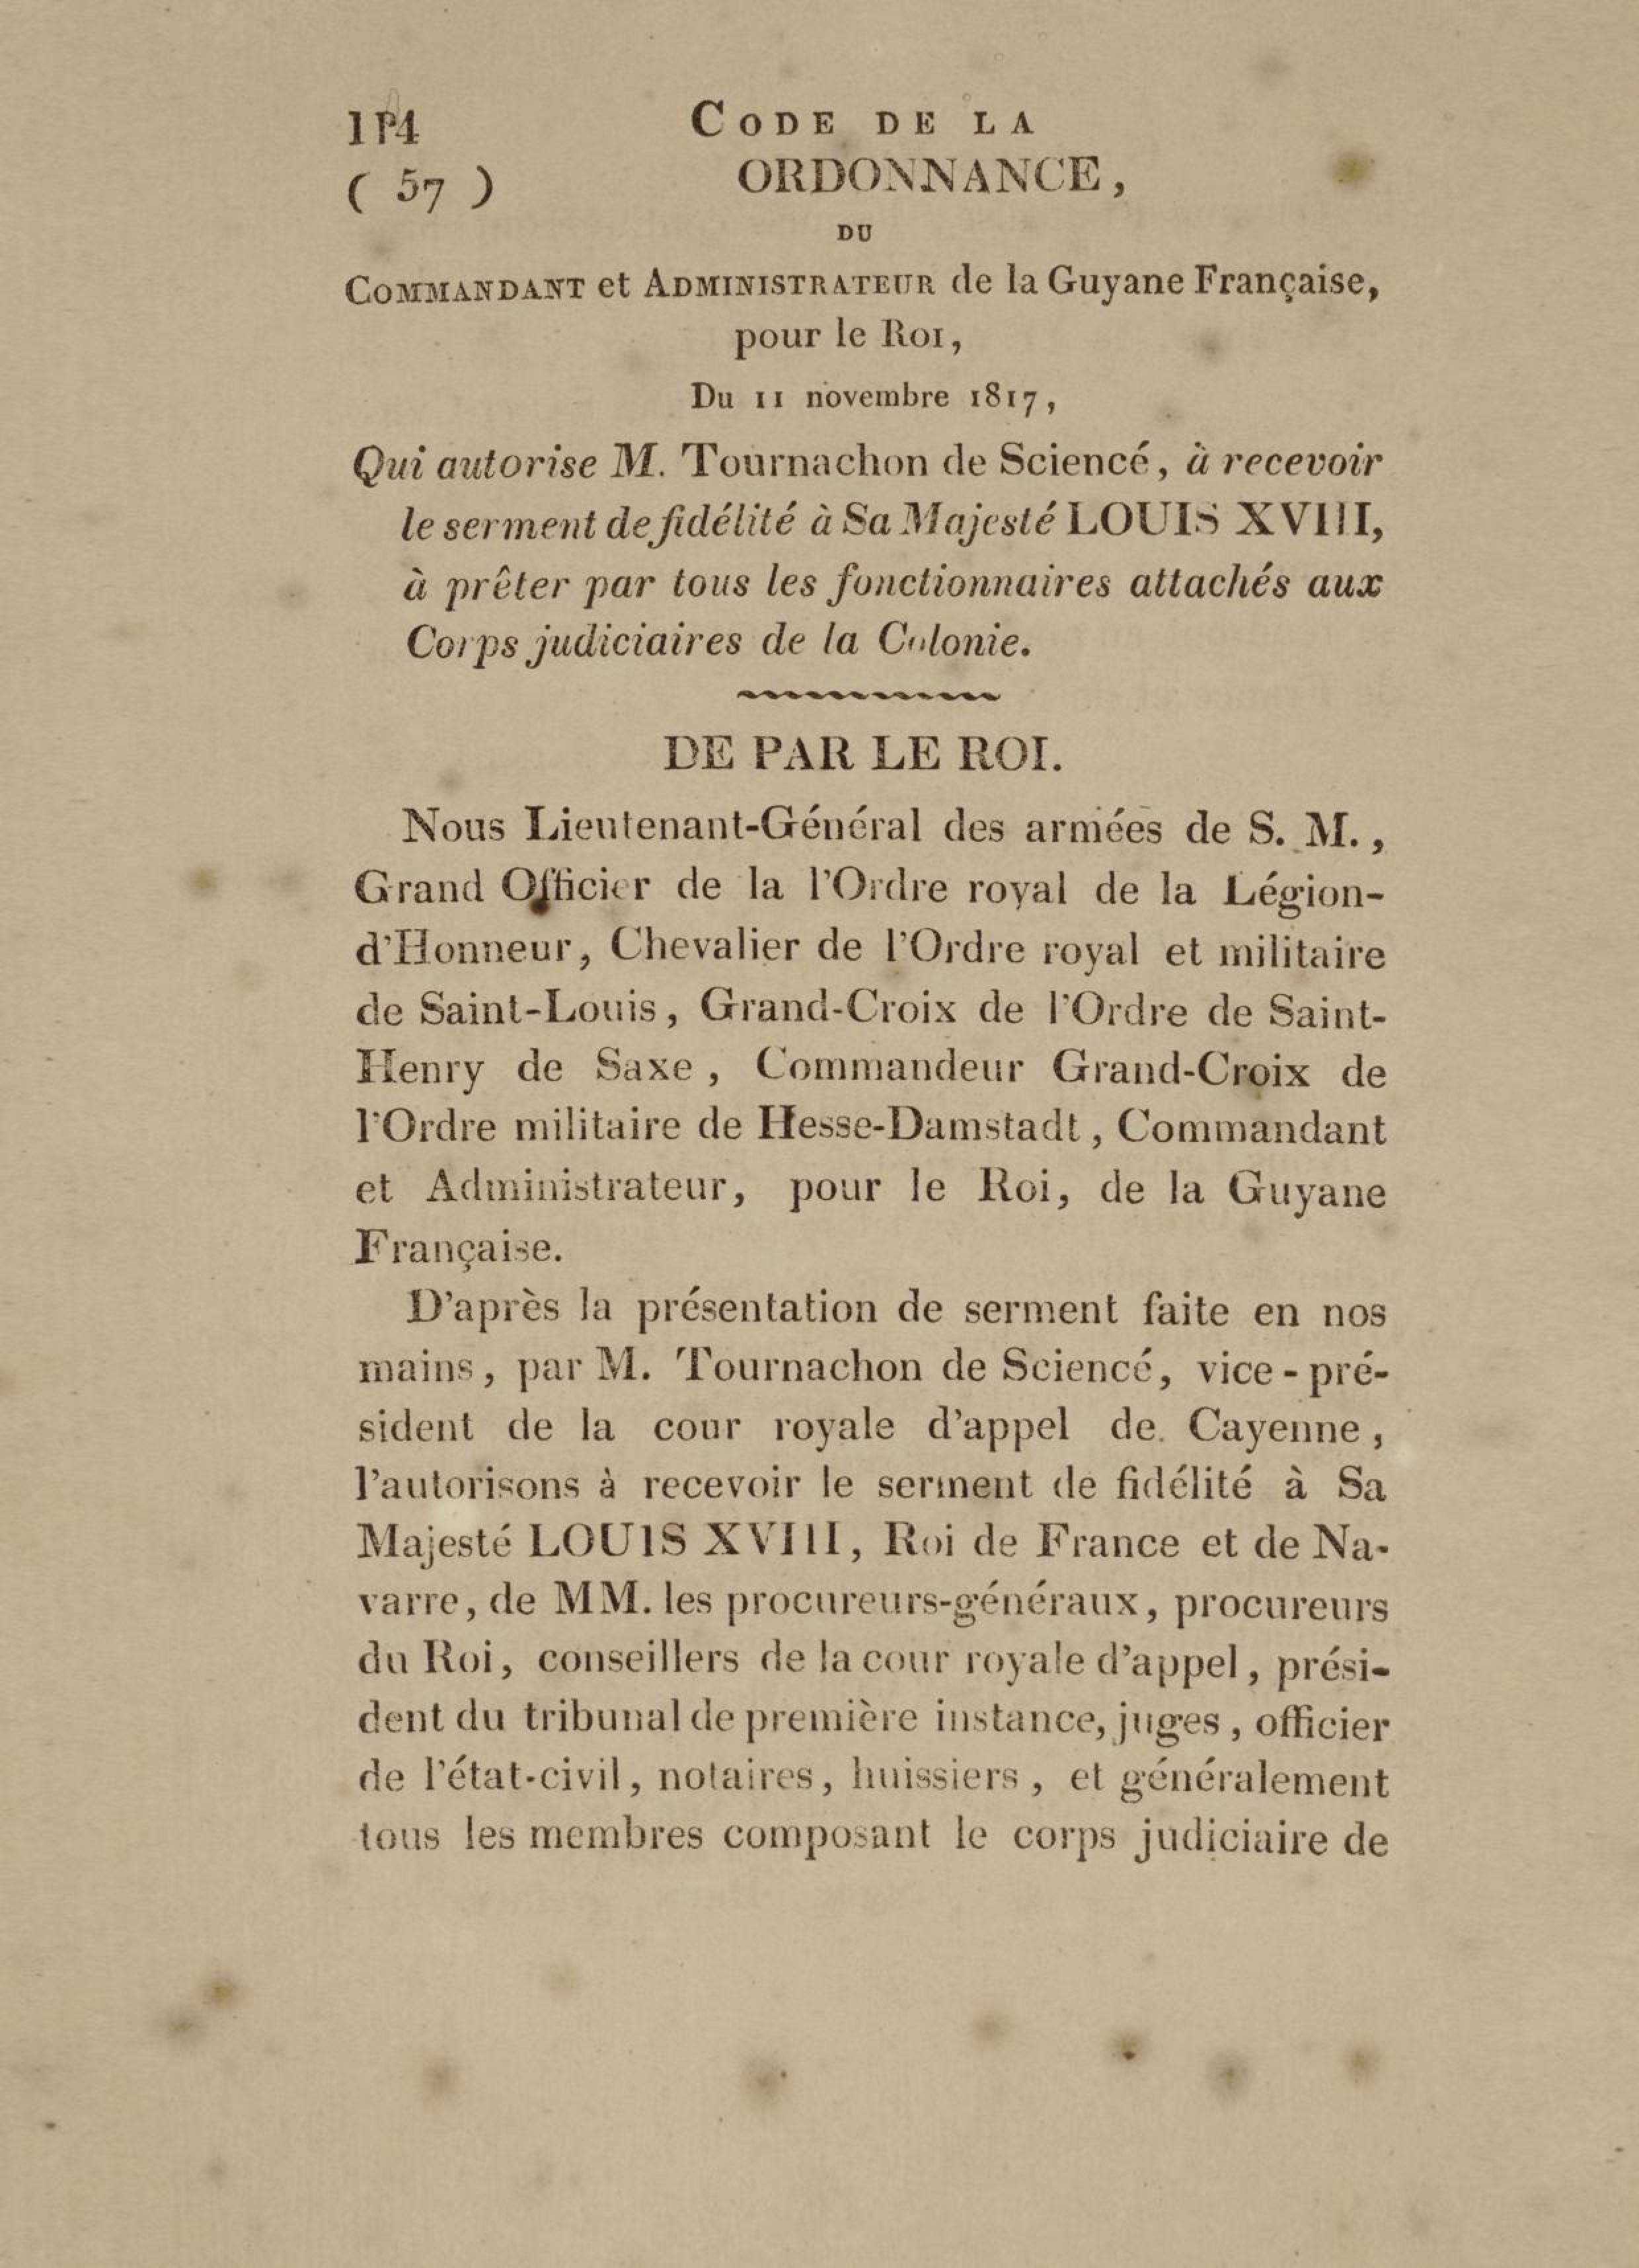 114 CODE DE LA
( 57 ) ORDONNANCE,
DU
COMMANDANT et ADMINISTRATEUR de la Guyane Française,
pour le ROI,
Du 11 novembre 1817,
Qui autorise M. Tournachon de Sciencé, à recevoir
le serment de fidélité à Sa Majesté LOUIS XVIII,
à prêter par tous les fonctionnaires attachés aux
Corps judiciaires de la Colonie.
DE PAR LE ROI.
Nous Lieutenant-Général des armées de S. M.,
Grand Officier de la l'Ordre royal de la Légion-
d'Honneur, Chevalier de l'Ordre royal et militaire
de Saint-Louis, Grand-Croix de l'Ordre de Saint-
Henry de Saxe, Commandeur Grand-Croix de
l'Ordre militaire de Hesse-Damstadt, Commandant
et Administrateur, pour le Roi, de la Guyane
Française.
D'après la présentation de serment faite en nos
mains, par M. Tournachon de Sciencé, vice-pré-
sident de la cour royale d'appel de. Cayenne,
l'autorisons à recevoir le serment de fidélité à Sa
Majesté LOUIS XVIII, Roi de France et de Na-
varre, de MM. les procureurs-généraux, procureurs
du Roi, conseillers de la cour royale d'appel, prési-
dent du tribunal de première instance, juges, officier
de l'état-civil, notaires, huissiers, et généralement
tous les membres composant le corps judiciaire de